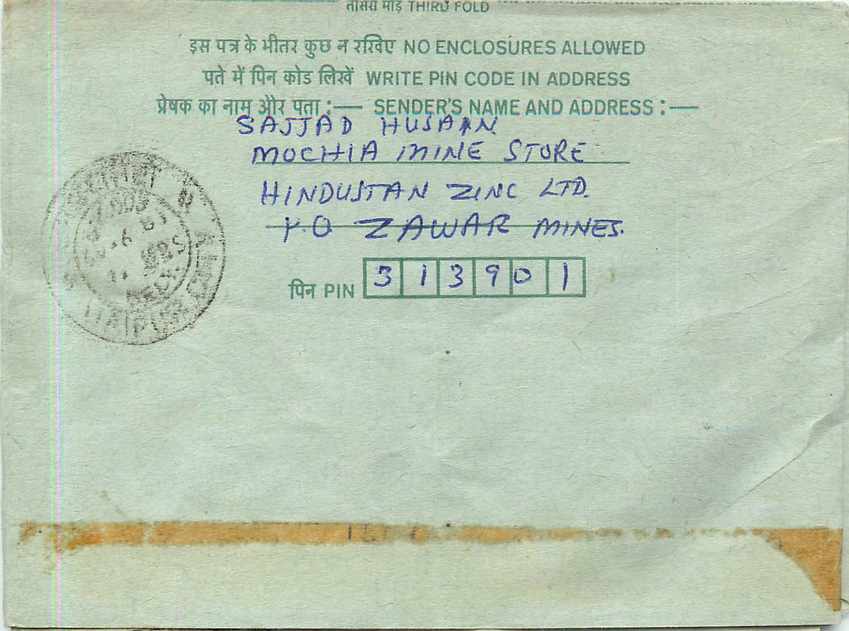 तीसरा मोड़ THIRD FOLD
इस पत्र के भीतर कुछ न रखिए NO ENCLOSURES ALLOWED
पते में पिन कोड लिखें WRITE PIN CODE IN ADDRESS
प्रेषक का नाम और पता :— SENDER'S NAME AND ADDRESS :—
SAJJAD HUSAAN
MOCHIA MINE STORE
HINDUSTAN ZINC LTD.
P.O ZAWAR MINES.
पिन PIN 313901